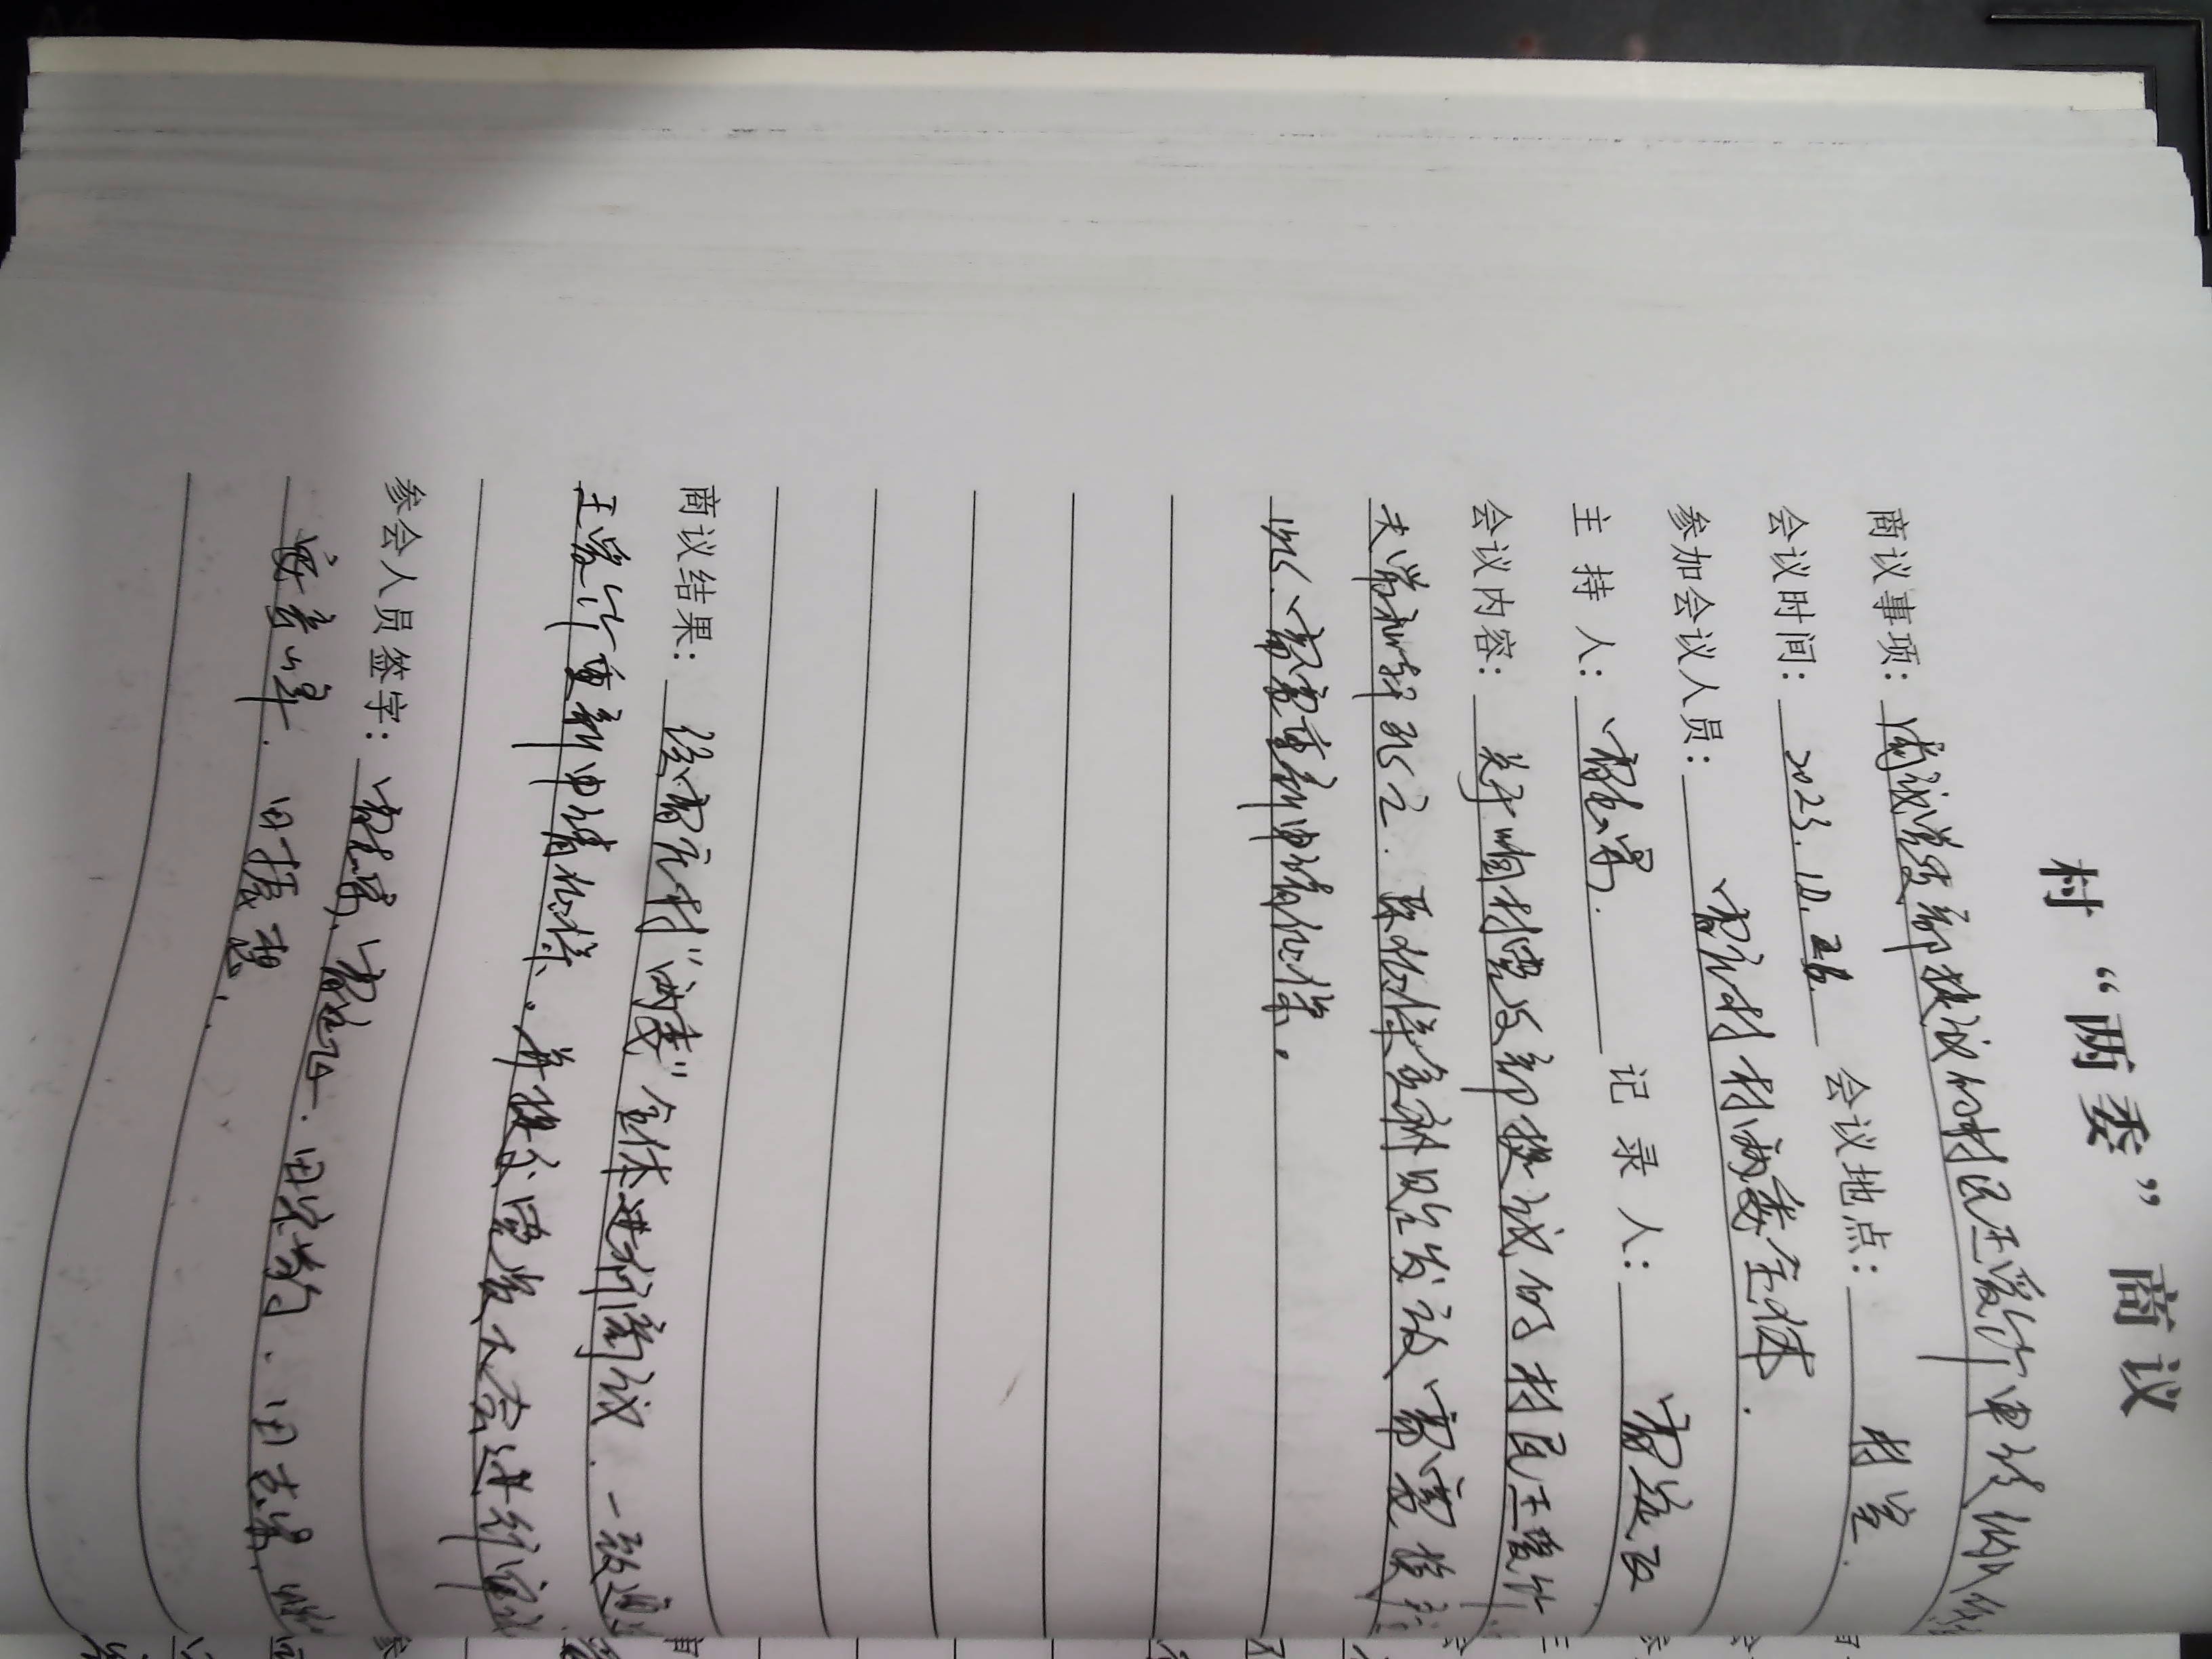 村“两委”商议
商议事项：商议党支部提议的村民王爱竹申请纳入低
会议时间：2023.10.26. 会议地点：村室.
参加会议人员：雷庄村村两委全体.
主持人：雷志景. 记录人：雷运飞
会议内容：关于咱村党支部提议的村民王爱竹
夫常和轩死亡.原低保金补贴发放需要换
以需要重新申请低保。
商议结果：经雷庄村“两委”全体进行商议.一致通
王爱竹重新申请低保。并提交党员大会进行审议
参会人员签字：雷志景、雷运飞.田宗 .田志景.
安彦峰.田振想.